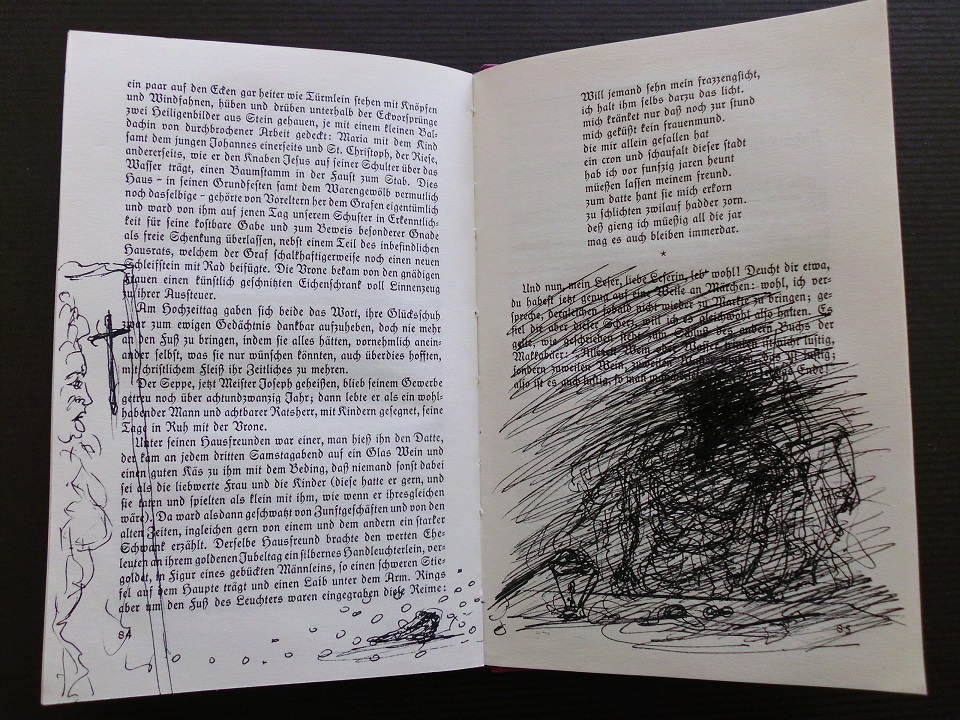 ein paar auf den Ecken gar heiter wie Türmlein stehen mit Knöpfen
und Windfahnen, hüben und drüben unterhalb der Eckvorsprünge
zwei Heiligenbilder aus Stein gehauen, je mit einem kleinen Bal-
dachin von durchbrochener Arbeit gedeckt: Maria mit dem Kind
samt dem jungen Johannes einerseits und St. Christoph, der Riese,
andererseits, wie er den Knaben Jesus auf seiner Schulter über das
Wasser trägt, einen Baumstamm in der Faust zum Stab. Dies
Haus – in seinen Grundfesten samt dem Warengewölb vermutlich
noch dasselbige – gehörte von Voreltern her dem Grafen eigentümlich
und ward von ihm auf jenen Tag unserem Schuster in Erkenntlich-
keit für seine kostbare Gabe und zum Beweis besonderer Gnade
als freie Schenkung überlassen, nebst einem Teil des inbefindlichen
Hausrats, welchem der Graf schalkhaftigerweise noch einen neuen
Schleifstein mit Rad beifügte. Die Vrone bekam von den gnädigen
Frauen einen künstlich geschnitzten Eichenschrank voll Linnenzeug
zu ihrer Aussteuer.
Am Hochzeittag gaben sich beide das Wort, ihre Glücksschuh
zwar zum ewigen Gedächtnis dankbar aufzuheben, doch nie mehr
an den Fuß zu bringen, indem sie alles hätten, vornehmlich anein-
ander selbst, was sie nur wünschen könnten, auch überdies hofften,
mit christlichem Fleiß ihr Zeitliches zu mehren.
Der Seppe, jetzt Meister Joseph geheißen, blieb seinem Gewerbe
getreu noch über achtundzwanzig Jahr; dann lebte er als ein wohl-
habender Mann und achtbarer Ratsherr, mit Kindern gesegnet, seine
Tage in Ruh mit der Vrone.
Unter seinen Hausfreunden war einer, man hieß ihn den Datte,
der kam an jedem dritten Samstagabend auf ein Glas Wein und
einen guten Käs zu ihm mit dem Beding, daß niemand sonst dabei
sei als die liebwerte Frau und die Kinder (diese hatte er gern, und
sie taten und spielten als klein mit ihm, wie wenn er ihresgleichen
wäre). Da ward alsdann geschwatzt von Zunftgeschäften und von den
alten Zeiten, ingleichen gern von einem und dem andern ein starker
Schwank erzählt. Derselbe Hausfreund brachte den werten Ehe-
leuten an ihrem goldenen Jubeltag ein silbernes Handleuchterlein, ver-
goldet, in Figur eines gebückten Männleins, so einen schweren Stie-
fel auf dem Haupte trägt und einen Laib unter dem Arm. Rings
aber um den Fuß des Leuchters waren eingegraben diese Reime:
84
Will jemand sehn mein frazzengsicht,
ich halt ihm selbs darzu das licht.
mich kränket nur daß noch zur stund
mich geküßt kein frauenmund.
die mir allein gefallen hat
ein cron und schaufalt dieser stadt
hab ich vor funfzig jaren heunt
müeßen lassen meinem freund.
zum datte hant sie mich erkorn
zu schlichten zwilauf hadder zorn.
deß gieng ich müeßig all die jar
mag es auch bleiben immerdar.
*
Und nun, mein Leser, liebe Leserin, leb wohl! Deucht dir etwa,
du habest jetzt genug auf eine Weile an Märchen: wohl, ich ver-
spreche, dergleichen sobald nicht wieder zu Markte zu bringen; ge-
fiel dir aber dieser Scherz, will ich es gleichwohl also halten. Es
gelte, wie geschrieben steht zum Schluß des andern Buchs der
Makkabäer: Allezeit Wein oder Wasser trinken ist nicht lustig,
sondern zuweilen Wein, zuweilen Wasser trinken, das ist lustig;
also ist es auch lustig, so man Ende!
85